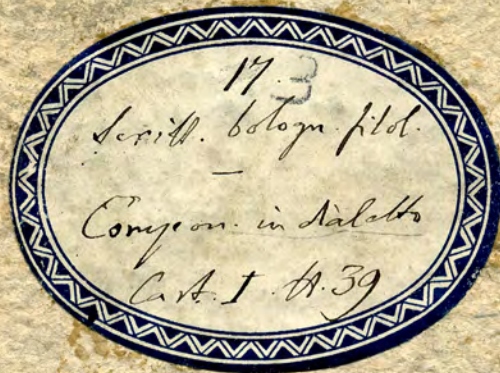 17. 3
Scritt. bologn. filol.
—
Compon. in dialetto
Cart. I. N. 39